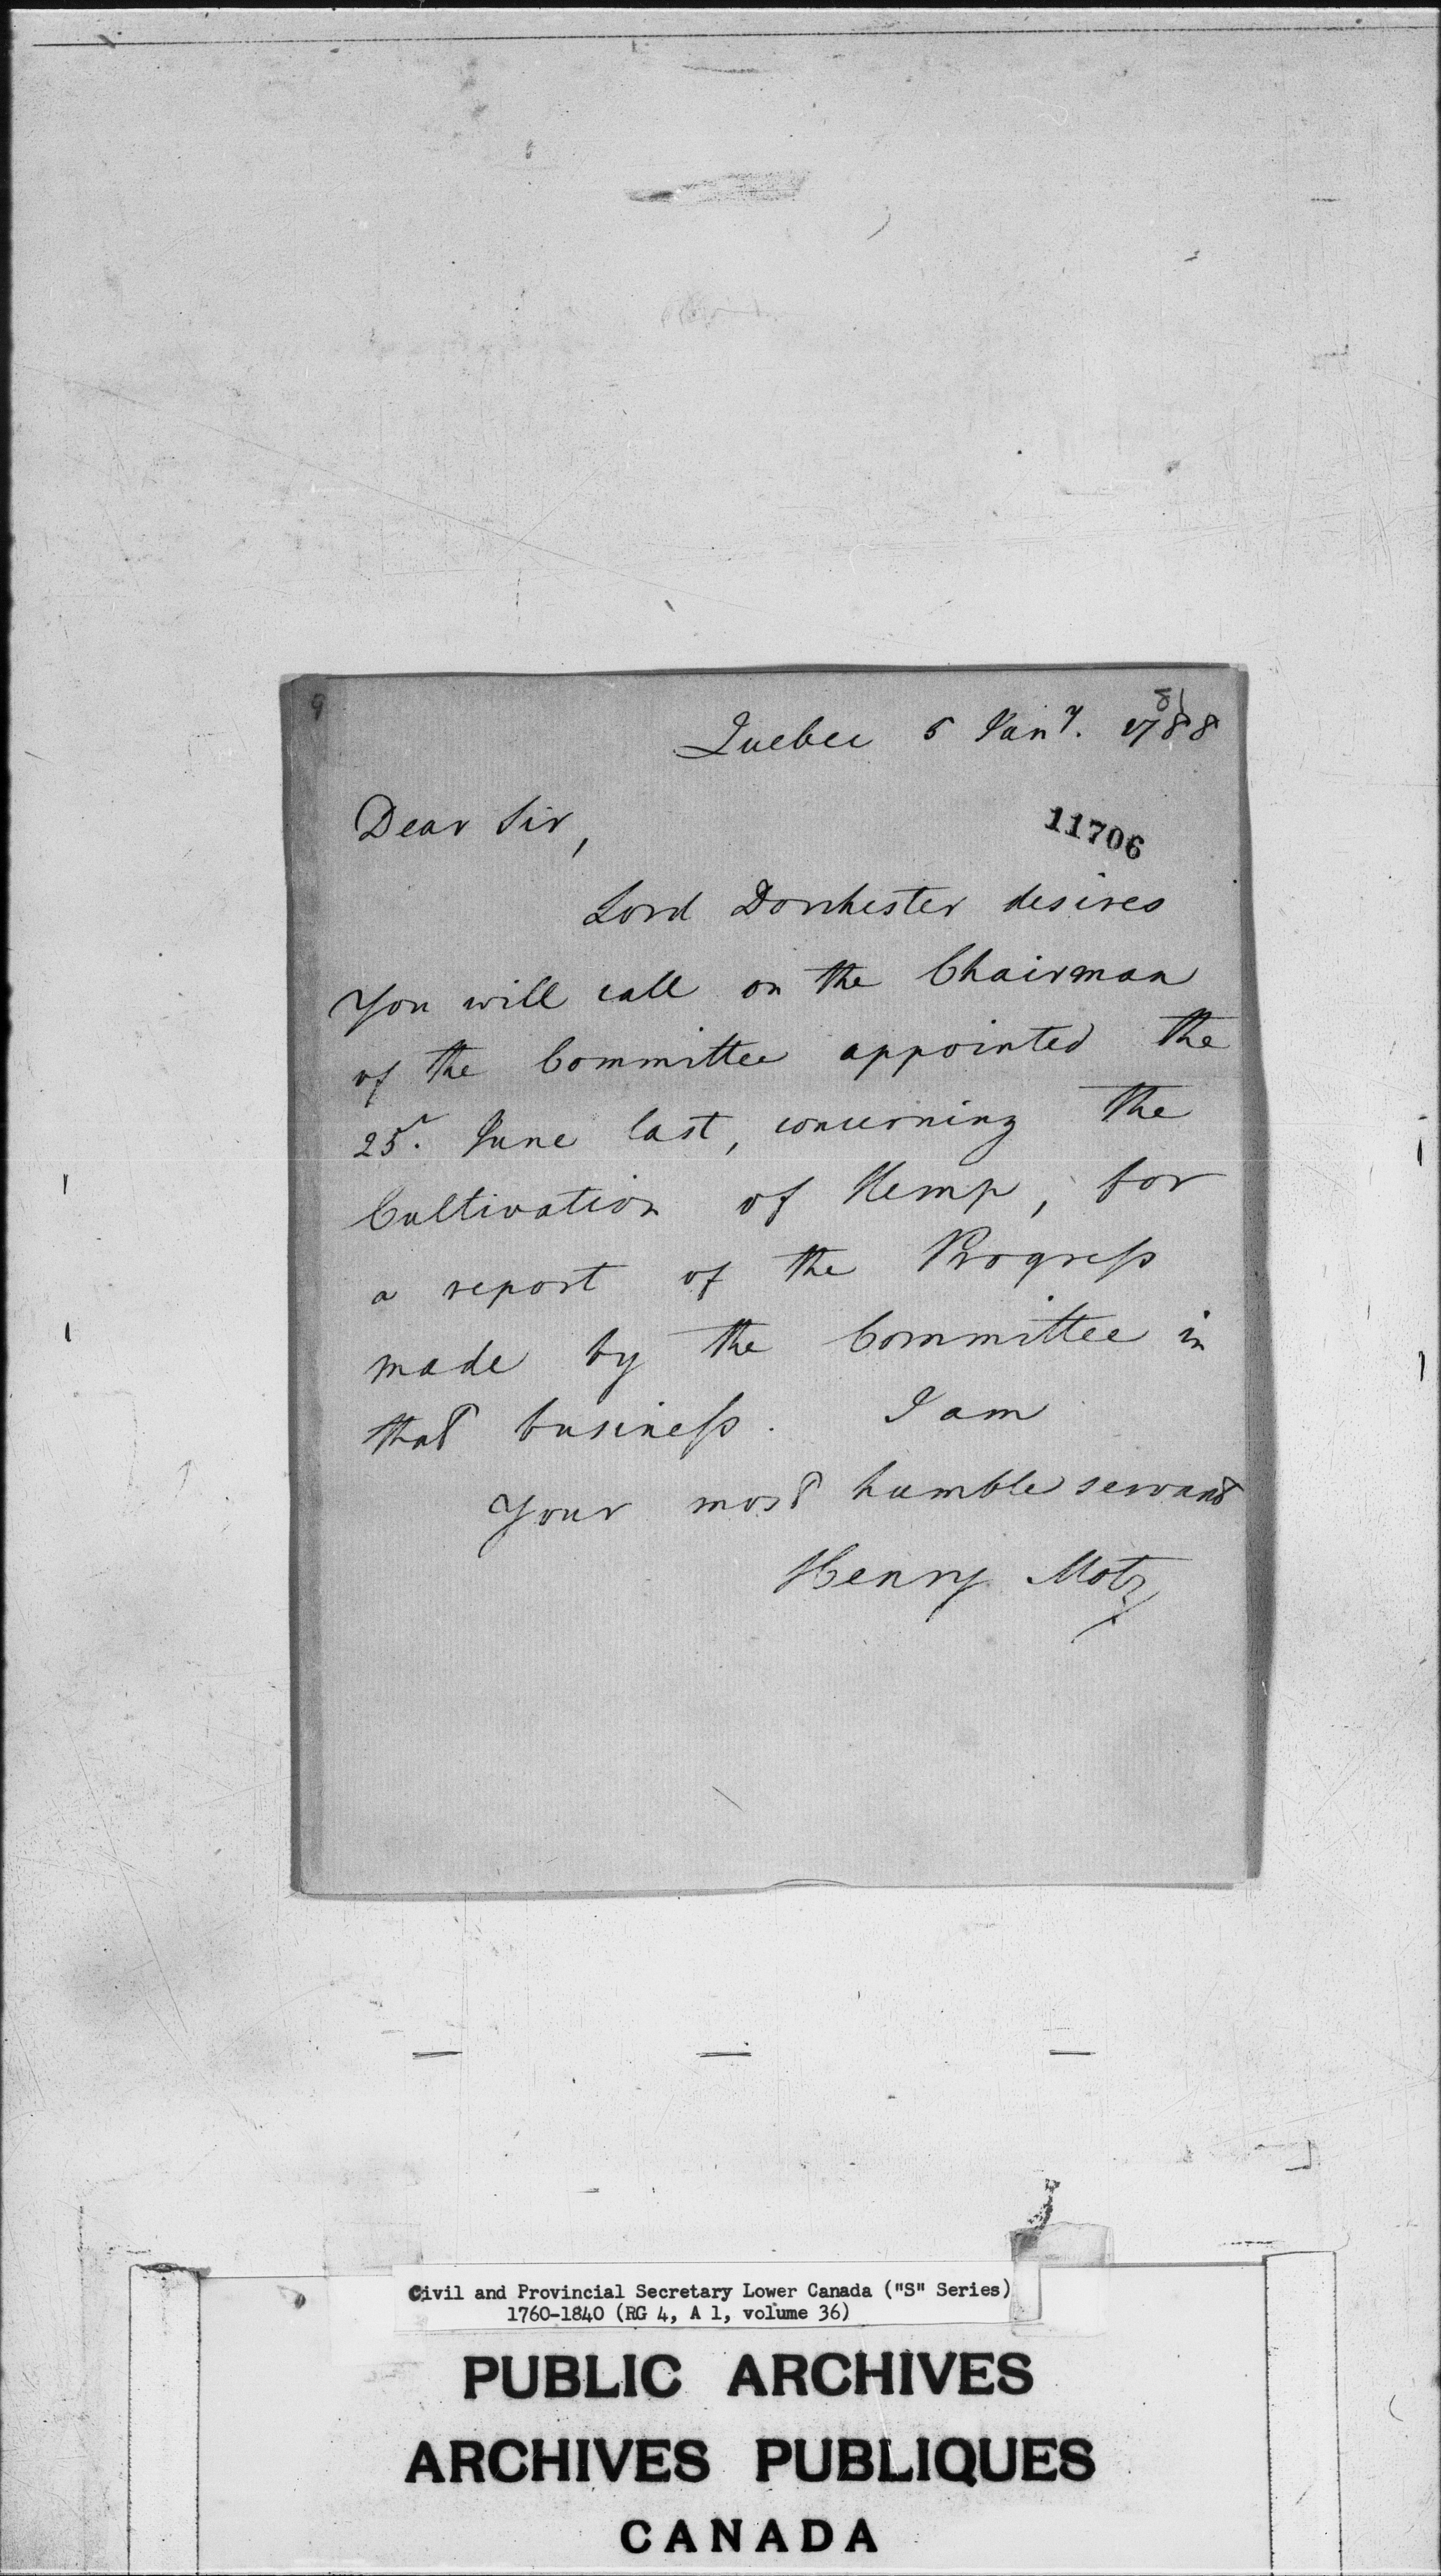 9
81
Quebec 5 Jany. 1788
Dear Sir,
11706
Lord Dorchester desires
you will call on the Chairman
of the Committee appointed the
25. June last, concerning the
Cultivation of Hemp, for
a report of the Progress
made by the Committee in
that business. I am
Your most humble servant
Henry Motz
Civil and Provincial Secretary Lower Canada ("S" Series)
1760-1840 (RG 4, A 1, volume 36)
PUBLIC ARCHIVES
ARCHIVES PUBLIQUES
CANADA